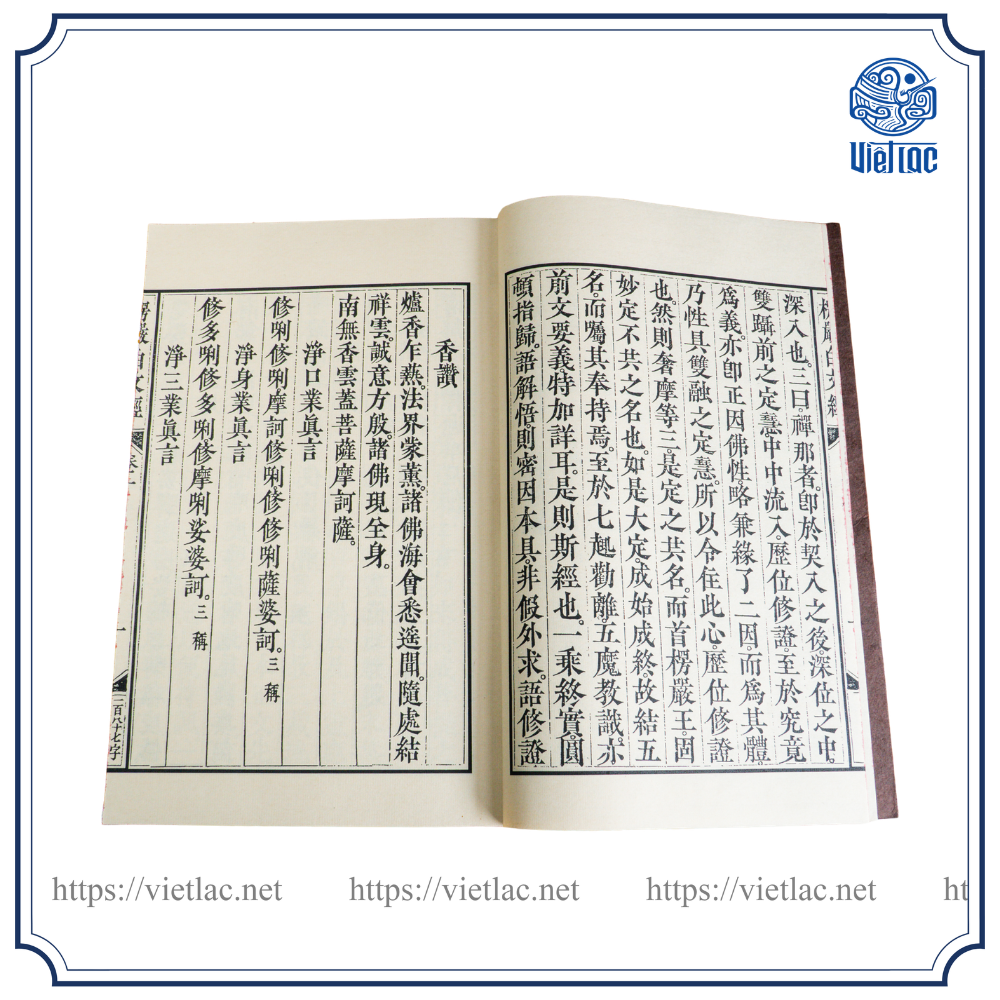 Việt Lạc
楞嚴白文經
深入也。三曰。禪那者。卽於契入之後。深位之中。
雙躡前之定慧。中中流入。歷位修證。至於究竟
爲義。亦卽正因佛性。略兼緣了二因。而爲其體。
乃性具雙融之定慧。所以令住此心。歷位修證
也。然則奢摩等三。是定之共名。而首楞嚴王。固
妙定不共之名也。如是大定。成始成終。故結五
名。而囑其奉持焉。至於七趣勸離。五魔教識。亦
前文要義。特加詳耳。是則斯經也。一乘終實。圓
頓指歸。語解悟。則密因本具。非假外求。語修證
香讚
爐香乍爇。法界蒙薰。諸佛海會悉遙聞。隨處結
祥雲。誠意方殷。諸佛現全身。
南無香雲蓋菩薩摩訶薩。
淨口業眞言
修唎修唎。摩訶修唎。修修唎薩婆訶。三稱
淨身業眞言
修多唎。修多唎。修摩唎。娑婆訶。三稱
淨三業眞言
楞嚴白文經
一
二百八十七字
https://vietlac.net https://vietlac.net https://vietlac.net ht